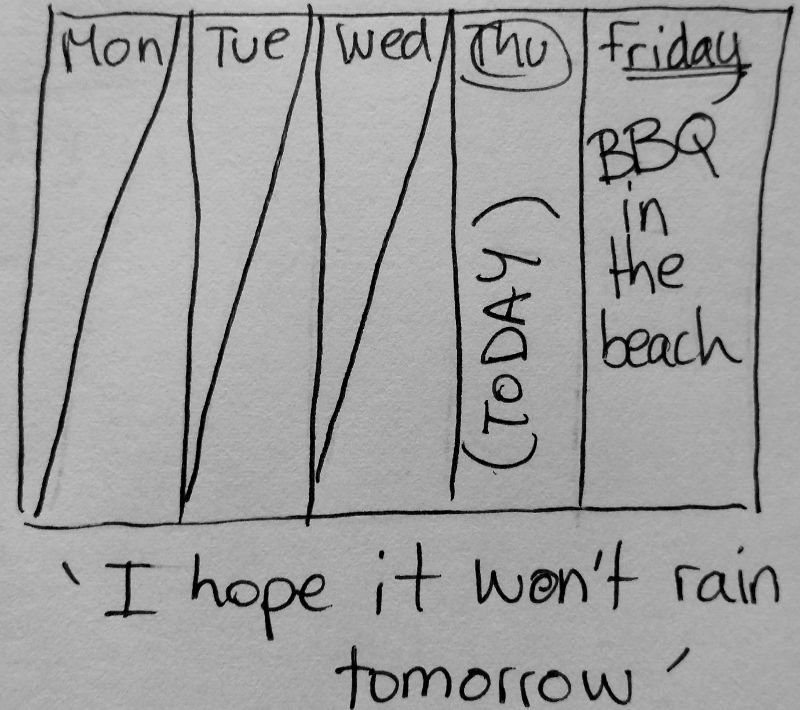 Mon Tue Wed Thu Friday
BBQ
in
the
beach
(TODAY)
'I hope it won't rain
tomorrow'